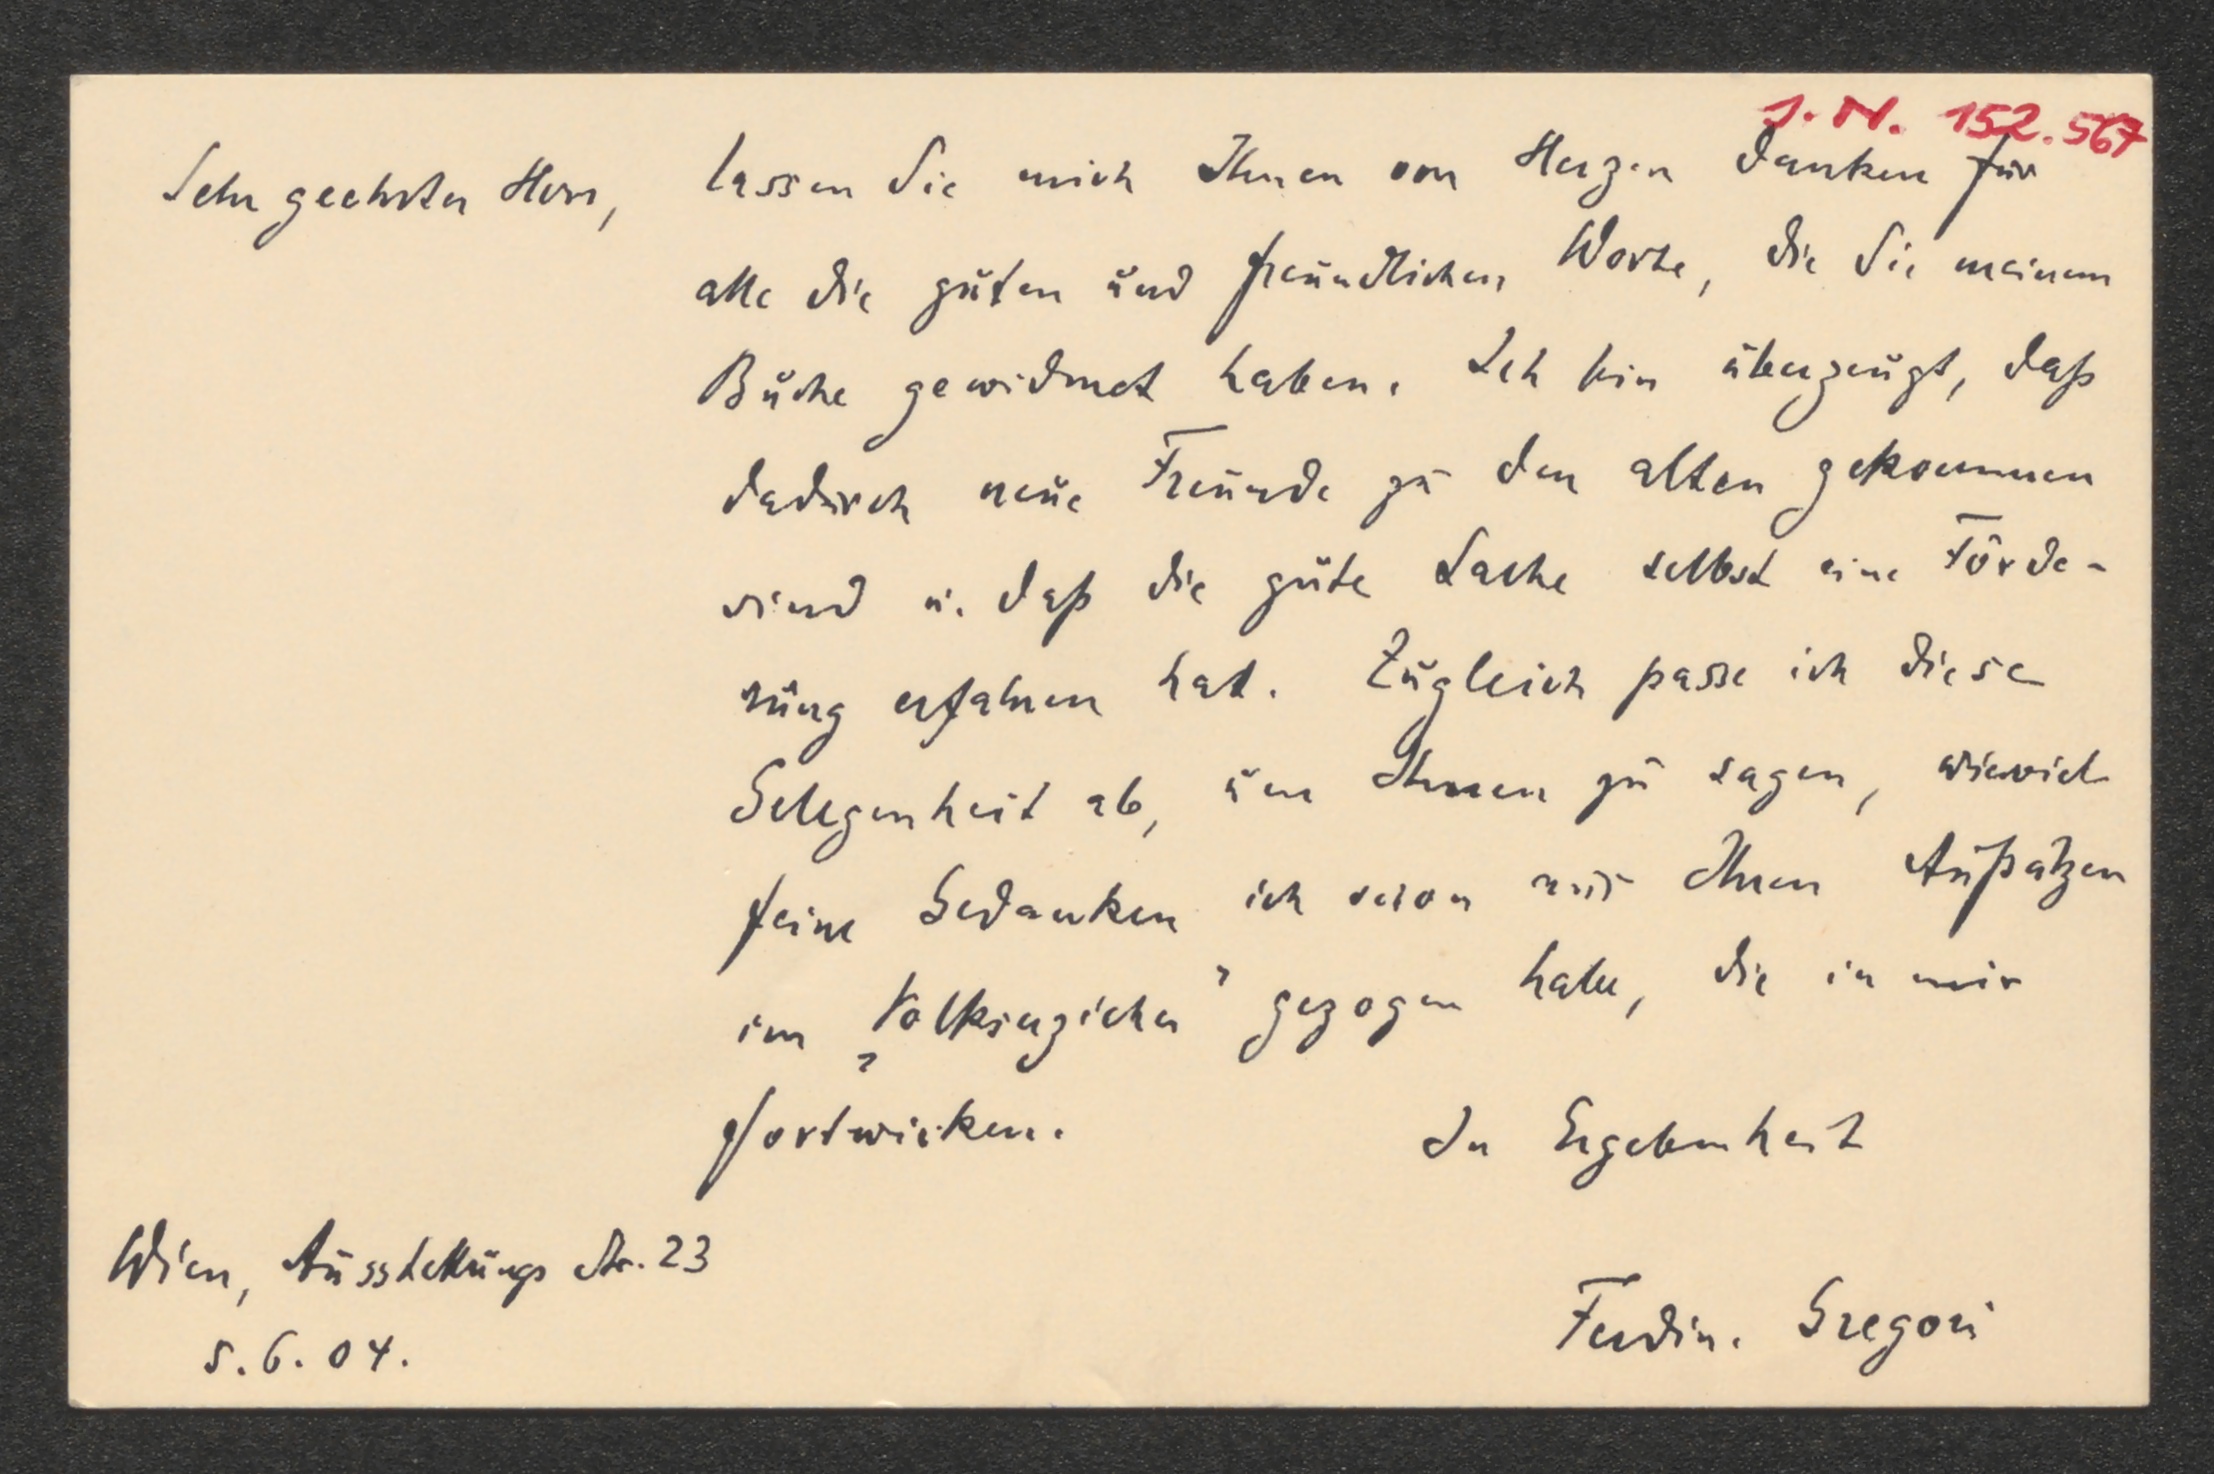 J. N. 152.567
Sehr geehrter Herr, lassen Sie mich Ihnen von Herzen danken für
alle die guten und freundlichen Worte, die Sie meinem
Buche gewidmet haben. Ich bin überzeugt, daß
dadurch neue Freunde zu den alten gekommen
sind u. daß die gute Sache selbst eine Förde-
rung erfahren hat. Zugleich passe ich diese
Gelegenheit ab, um Ihnen zu sagen, wieviel
feine Gedanken ich schon aus Ihren Aufsätzen
im „Volkserzieher" gezogen habe, die in mir
fortwirken.
In Ergebenheit
Wien, Ausstellungs Str. 23
5.6.04.
Ferdin. Gregori